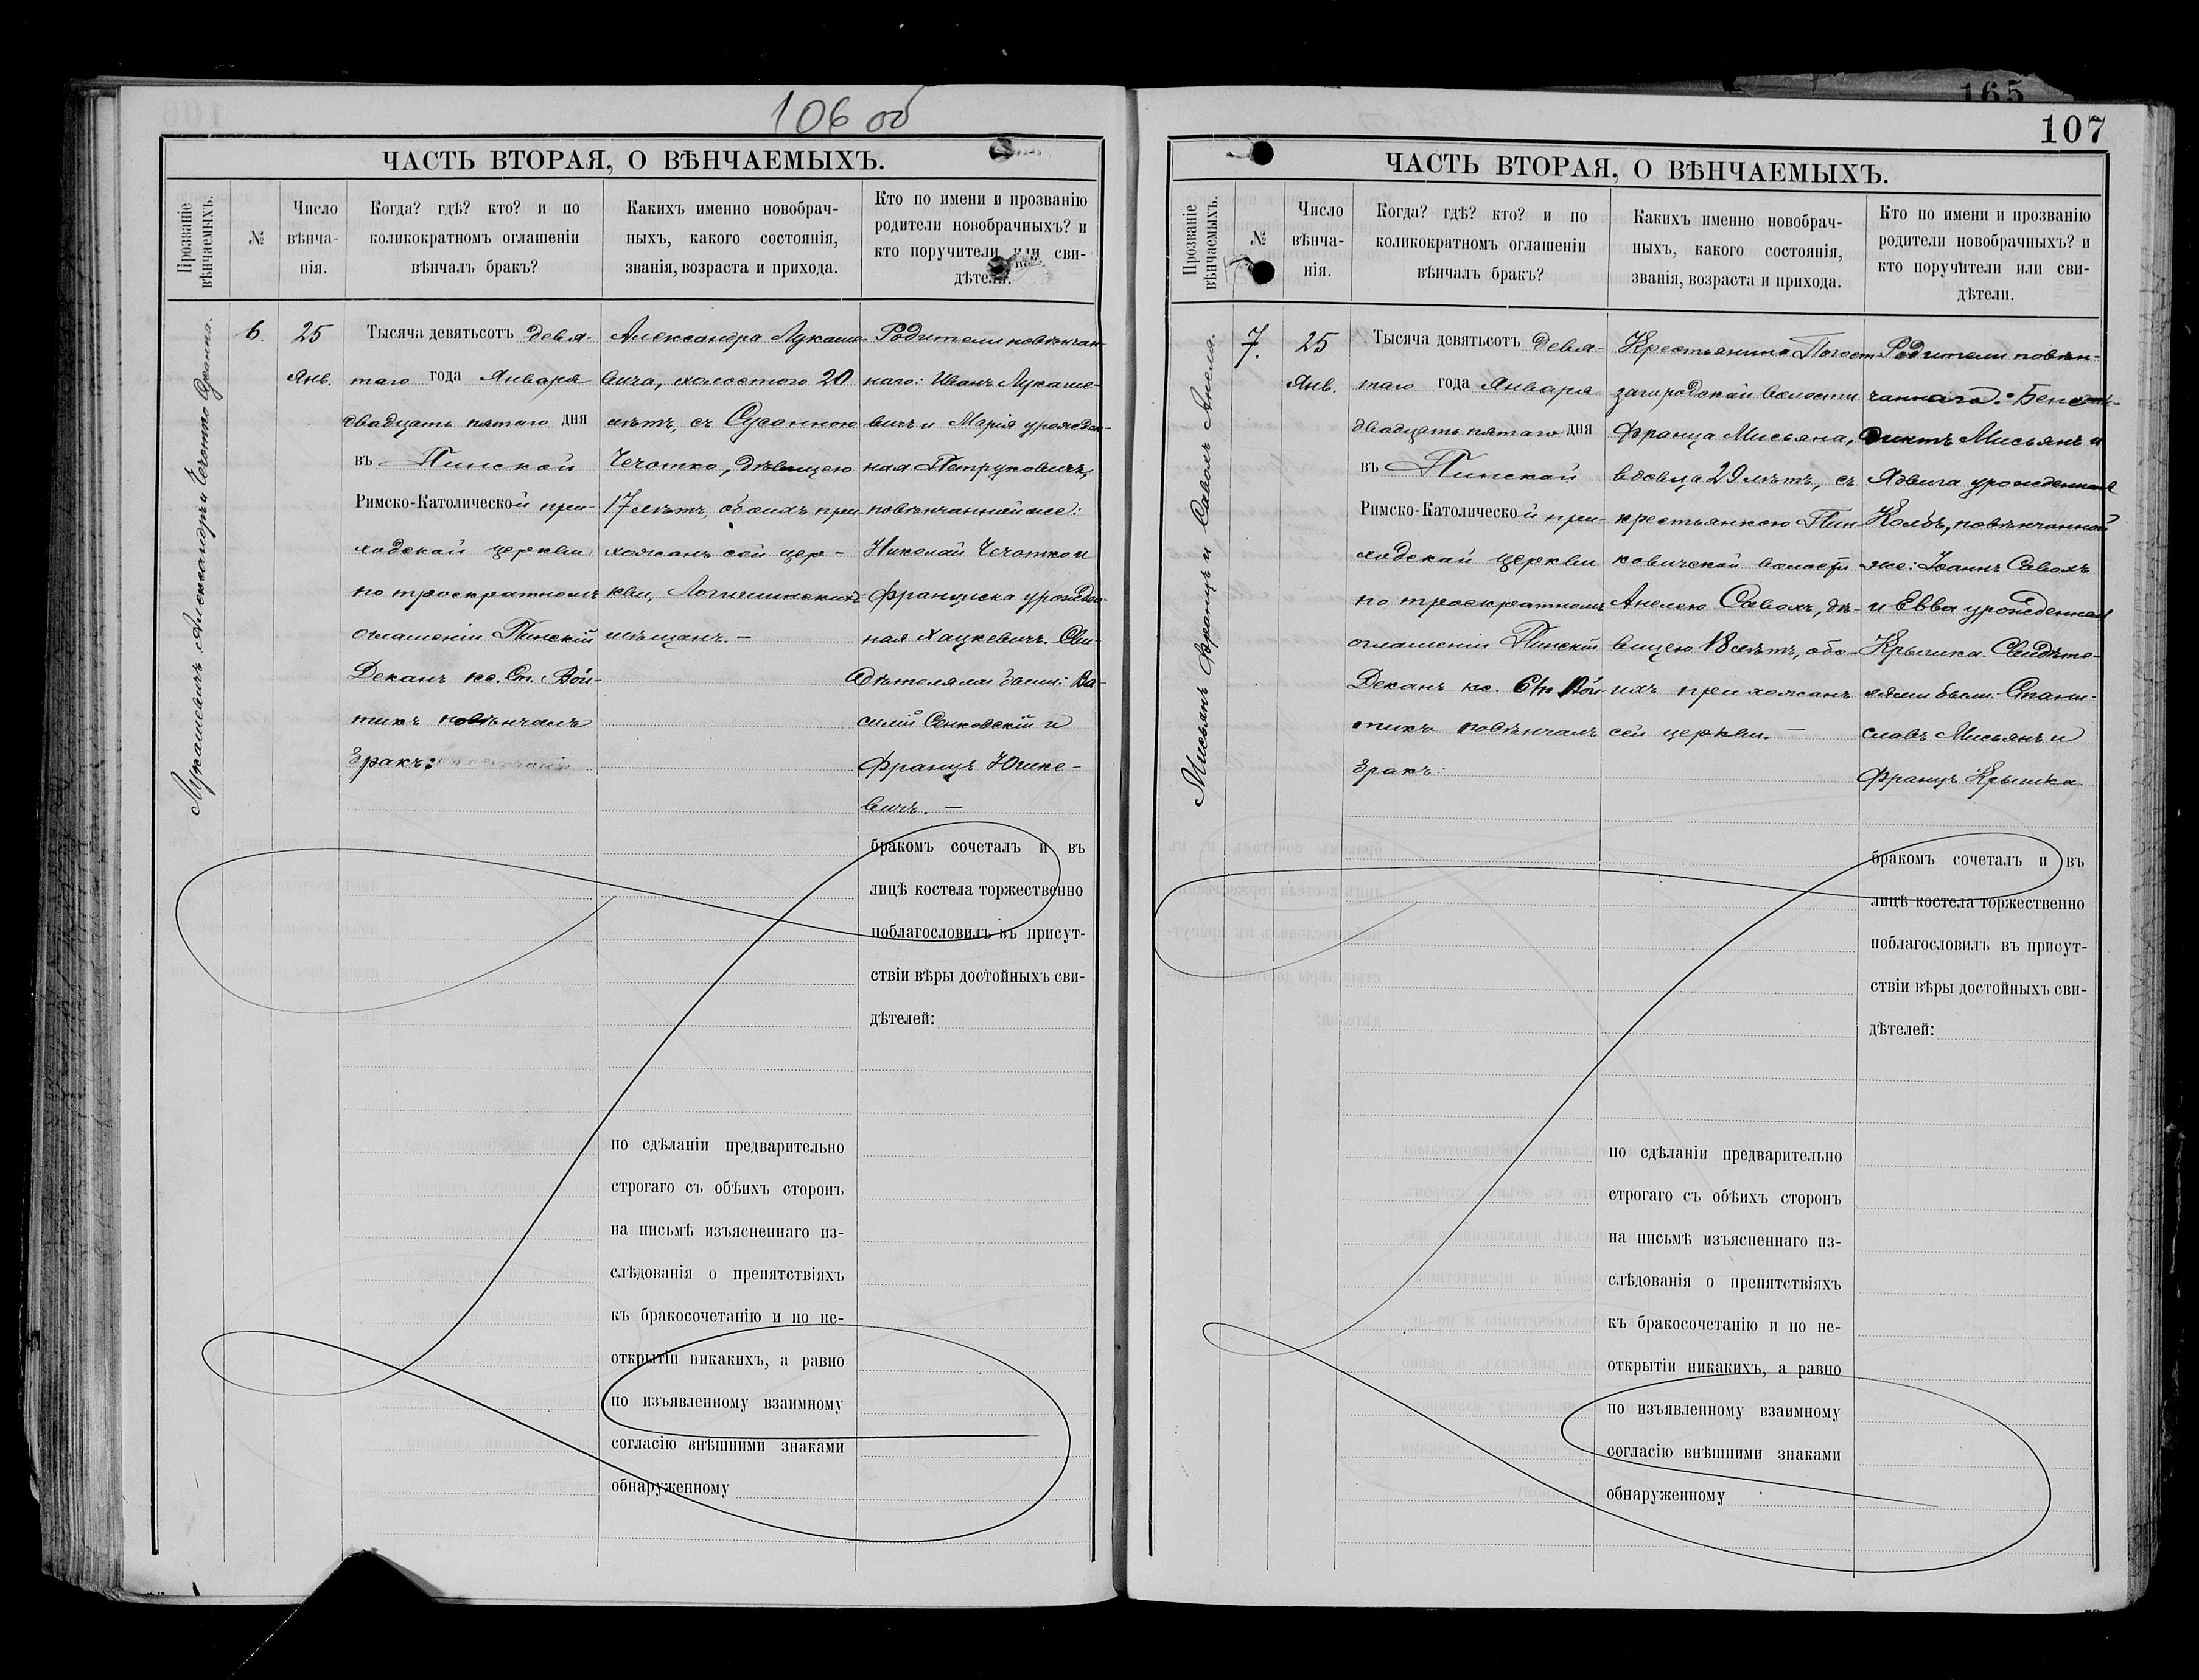 106 об
ЧАСТЬ ВТОРАЯ, О ВѢНЧАЕМЫХЪ.
Прозваніе вѣнчаемыхъ.
№
Число вѣнча-нія.
Когда? гдѣ? кто? и по
коликократномъ оглашеніи
вѣнчалъ бракъ?
Какихъ именно новобрач-
ныхъ, какого состоянія,
званія, возраста и прихода.
Кто по имени и прозванію
родители новобрачныхъ? и
кто поручители или сви-
дѣтели.
Лукашевичъ Александръ и Чечотко Сусанна.
6.
25
Янв.
Тысяча девятьсотъ девя-
таго года Января
двадцать пятаго дня
въ Пинской
Римско-Католической при-
ходской церкви
по троекратномъ
оглашеніи Пинскій
Деканъ кс. Ст. Вой-
тикъ повѣнчалъ
бракъ:
Александра Лукаше-
вича, холостого 20
лѣтъ, съ Сусанною
Чечотко, дѣвицею
17 лѣтъ, обоихъ при-
хожанъ сей цер-
кви, Логишинскихъ
мѣщанъ. —
Родители повѣнчан-
наго: Иванъ Лукаше-
вичъ и Марія урожден-
ная Петруковичъ,
повѣнчанной же:
Николай Чечотко и
Франциска урожден-
ная Хацкевичъ. Сви-
дѣтелями были: Ва-
силій Сенковскій и
Францъ Юшке-
вичъ. —
бракомъ сочеталъ и въ
лицѣ костела торжественно
поблагословилъ въ присут-
ствіи вѣры достойныхъ сви-
дѣтелей:
по сдѣланіи предварительно
строгаго съ обѣихъ сторонъ
на письмѣ изъясненнаго из-
слѣдованія о препятствіяхъ
къ бракосочетанію и по не-
открытіи никакихъ, а равно
по изъявленному взаимному
согласію внѣшними знаками
обнаруженному
165
107
ЧАСТЬ ВТОРАЯ, О ВѢНЧАЕМЫХЪ.
Прозваніе вѣнчаемыхъ.
№
Число вѣнча-нія.
Когда? гдѣ? кто? и по
коликократномъ оглашеніи
вѣнчалъ бракъ?
Какихъ именно новобрач-
ныхъ, какого состоянія,
званія, возраста и прихода.
Кто по имени и прозванію
родители новобрачныхъ? и
кто поручители или сви-
дѣтели.
Мисьянъ Францъ и Саволъ Анеля.
7.
25
Янв.
Тысяча девятьсотъ девя-
таго года Января
двадцать пятаго дня
въ Пинской
Римско-Католической при-
ходской церкви
по троекратномъ
оглашеніи Пинскій
Деканъ кс. Ст. Вой-
тикъ повѣнчалъ
бракъ:
Крестьянина Погост-
загородской волости
Франца Мисьяна,
вдовца 29 лѣтъ, съ
крестьянкою Пин-
ковичской волости
Анелею Саволъ, дѣ-
вицею 18 лѣтъ, обо-
ихъ прихожанъ
сей церкви. —
Родители повѣн-
чаннаго: Бене-
диктъ Мисьянъ и
Ядвига урожденная
Колбъ, повѣнчанной
же: Іоаннъ Саволъ
и Евва урожденная
Крышка. Свидѣте-
лями были: Стани-
славъ Мисьянъ и
Францъ Крышка
бракомъ сочеталъ и въ
лицѣ костела торжественно
поблагословилъ въ присут-
ствіи вѣры достойныхъ сви-
дѣтелей:
по сдѣланіи предварительно
строгаго съ обѣихъ сторонъ
на письмѣ изъясненнаго из-
слѣдованія о препятствіяхъ
къ бракосочетанію и по не-
открытіи никакихъ, а равно
по изъявленному взаимному
согласію внѣшними знаками
обнаруженному